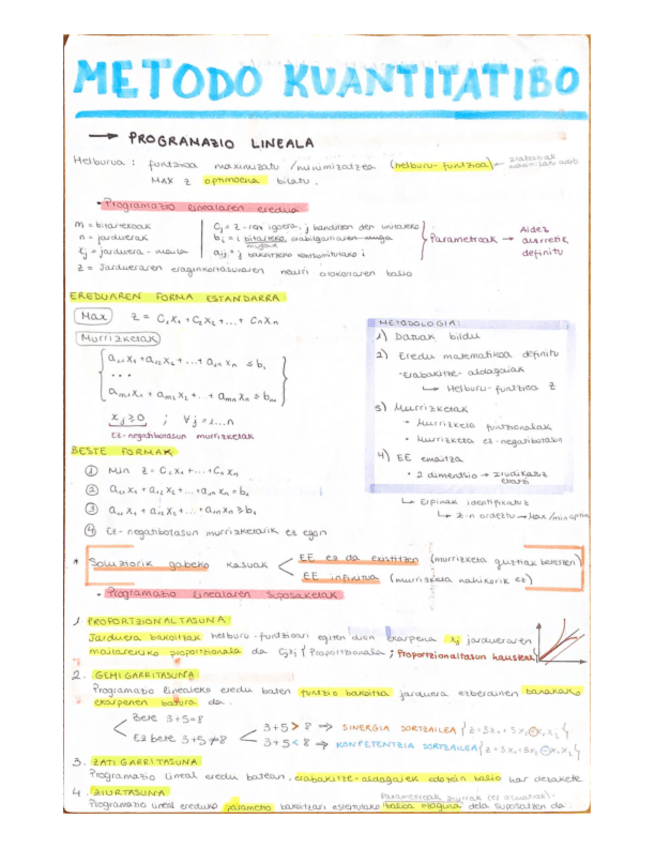 METODO KUANTITATIBO
→ PROGRAMAZIO LINEALA
Helburua : funtzioa maximizatu /minimizatzea (helburu-funtzioa)
MAX Z optimoena bilatu.
• Programazio linealaren eredua
m = bitartekoak
n = jarduerak
xj = jarduera - maila
Z = Jardueraren eraginkortasunaren neurri orokorraren balio
Cj = Z-ren igoera, j handitzen den unitateko
bi = i bitarteko erabilgarriaren muga
aij = j bakoitzeko kontsumitutako i
Parametroak → Aldez aurretik definitu
EREDUAREN FORMA ESTANDARRA
Max Z = C₁X₁ + C₂X₂ +...+ CnXn
Murrizketak
a₁₁X₁ + a₁₂X₂ + ... + a₁nXn ≤ b₁
...
am₁X₁ + am₂X₂ + ... + amnXn ≤ bm
xj ≥ 0 ; ∀j = 1...n
Ez-negatibotasun murrizketak
METODOLOGIA:
1) Datuak bildu
2) Eredu matematikoa definitu
-erabakitze-aldagaiak
↳ Helburu-funtzioa Z
3) Murrizketak
• Murrizketa funtzionalak
• Murrizketa ez-negatibotasun
4) EE emaitza
• 2 dimentsio → irudikatuz ebatzi
↳ Erpinak identifikatuz
↳ Z-n ordeztu → Max/min optim
BESTE FORMAK
① Min Z = C₁X₁ + ... + CnXn
② a₁₁X₁ + a₁₂X₂ + ... + a₁nXn = b₁
③ a₁₁X₁ + a₁₂X₂ + ... + a₁nXn ≥ b₁
④ Ez-negatibotasun murrizketarik ez egon
* Soluziorik gabeko kasuak < EE ez da existitzen (murrizketa guztiak betetzen)
EE infinitua (murrizketa nahikorik ez)
• Programazio linealaren suposaketak
1. PROPORTZIONALTASUNA
Jarduera bakoitzak helburu-funtzioari egiten dion ekarpena xj jardueraren
mailarekiko proportzionala da CjXj { Proportzionala ; Proportzionaltasun hausteak
2. GEHIGARRITASUNA
Programazio linealeko eredu baten funtzio bakoitza jarduera ezberdinen banakako
ekarpenen batura da.
Bete 3+5=8
Ez bete 3+5≠8 < 3+5 > 8 → SINERGIA SORTZAILEA {Z=3X₁+5X₂⊕X₁X₂}
3+5 < 8 → KONPETENTZIA SORTZAILEA {Z=3X₁+5X₂⊖X₁X₂}
3. ZATIGARRITASUNA
Programazio lineal eredu batean, erabakitze-aldagaiek edozein balio har dezakete
4. ZIURTASUNA
Parametroak ziurrak (ez aldakorrak).
Programazio lineal ereduko parametro bakoitzari esleitutako balioa ezaguna dela suposatzen da.